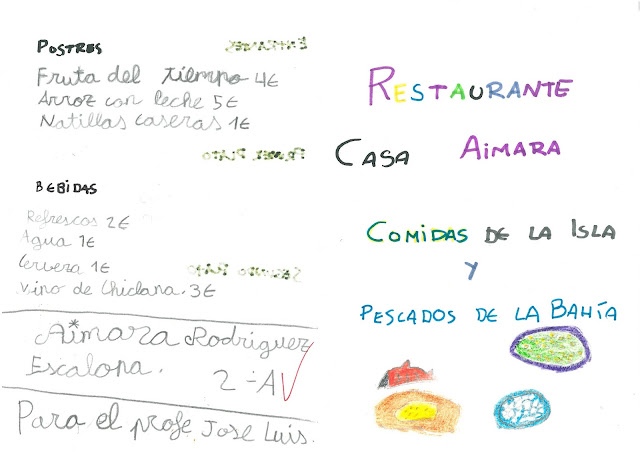 POSTRES
Fruta del tiempo 4€
Arroz con leche 5€
Natillas caseras 1€
BEBIDAS
Refrescos 2€
Agua 1€
Cerveza 1€
Vino de Chiclana. 3€
Aimara Rodriguez
Escalona. 2-A
Para el profe Jose Luis.
RESTAURANTE
CASA AiMARA
COMiDAS DE LA ISLA
Y
PESCADOS DE LA BAHÍA